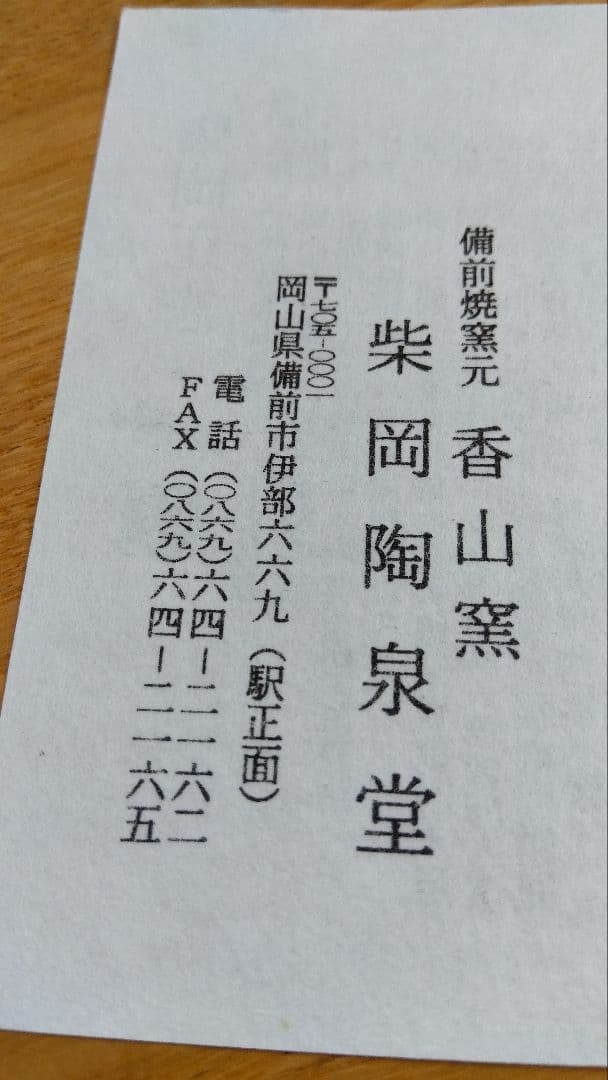 備前焼窯元 香山窯
柴岡陶泉堂
〒七〇五-〇〇〇一
岡山県備前市伊部六六九(駅正面)
電話(〇八六九)六四-二一六二
FAX(〇八六九)六四-二一六五